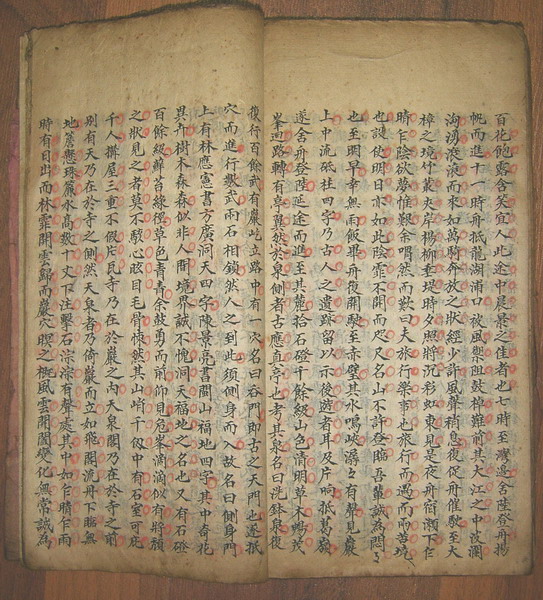 百花飽露含笑宜人此途中晨景之佳者也七時至灣邊舍陸登舟揚
帆而進十一時舟抵龍湖浦口被風壓阻鼓棹難前其大江之中波瀾
洶湧滾滾而來如萬騎奔放之狀經少許風聲稍息復促舟催駛至大
樟之境竹叢夾岸楊柳垂堤時夕照將沉彩虹東見是夜舟宿瀨下乍
晴乍陰欲夢惟艱余喟然而歎曰夫旅行樂事也旅行而遇而雨苦境
也設使明日亦如此陰霏不開而咫尺名山不許登臨吾輩誠為悶々
也至明早幸無雨飯畢舟復開駛至赤壁其水鳴峽潺々有聲見巖
上中流砥柱四字乃古人之遺跡留以示後遊者耳及片晌抵葛嶺
遂舍舟登陸延途而進至其麓拾石磴千餘級山色清明草木暢茂
峯迴路轉有亭翼然於泉側者古應真亭也考其泉名曰洗鉢泉復
復行百餘武有巖屹立路中有一穴名曰呑門即古之天門也遂抵
穴而進行數武兩石相鎖然人之到此須側身而入故名曰側身門
上有林應憲書方廣洞天四字陳景亮書閩山福地四字其中奇花
異卉樹木森森似非人間境界誠不愧洞天福地之名也又有石磴
百餘級蘚苔綠徑草色青青余鼓勇而前仰見危峯滴滴似有將頹
之狀見之者莫不駭心眩目毛骨悚然其山峭千仞中有石室可庇
千人搆屋三重不假片瓦寺乃在於巖之內天泉閣乃在於寺之前
別有天乃在於寺之側然天泉者乃倚巖而立如飛閣流丹下臨無
地簷懸珠簾水高數十丈下注擊石淙淙有聲處其中如乍晴乍雨
時有日出而林霏開雲歸而巖穴暝之概風雲開闔變化無常誠為